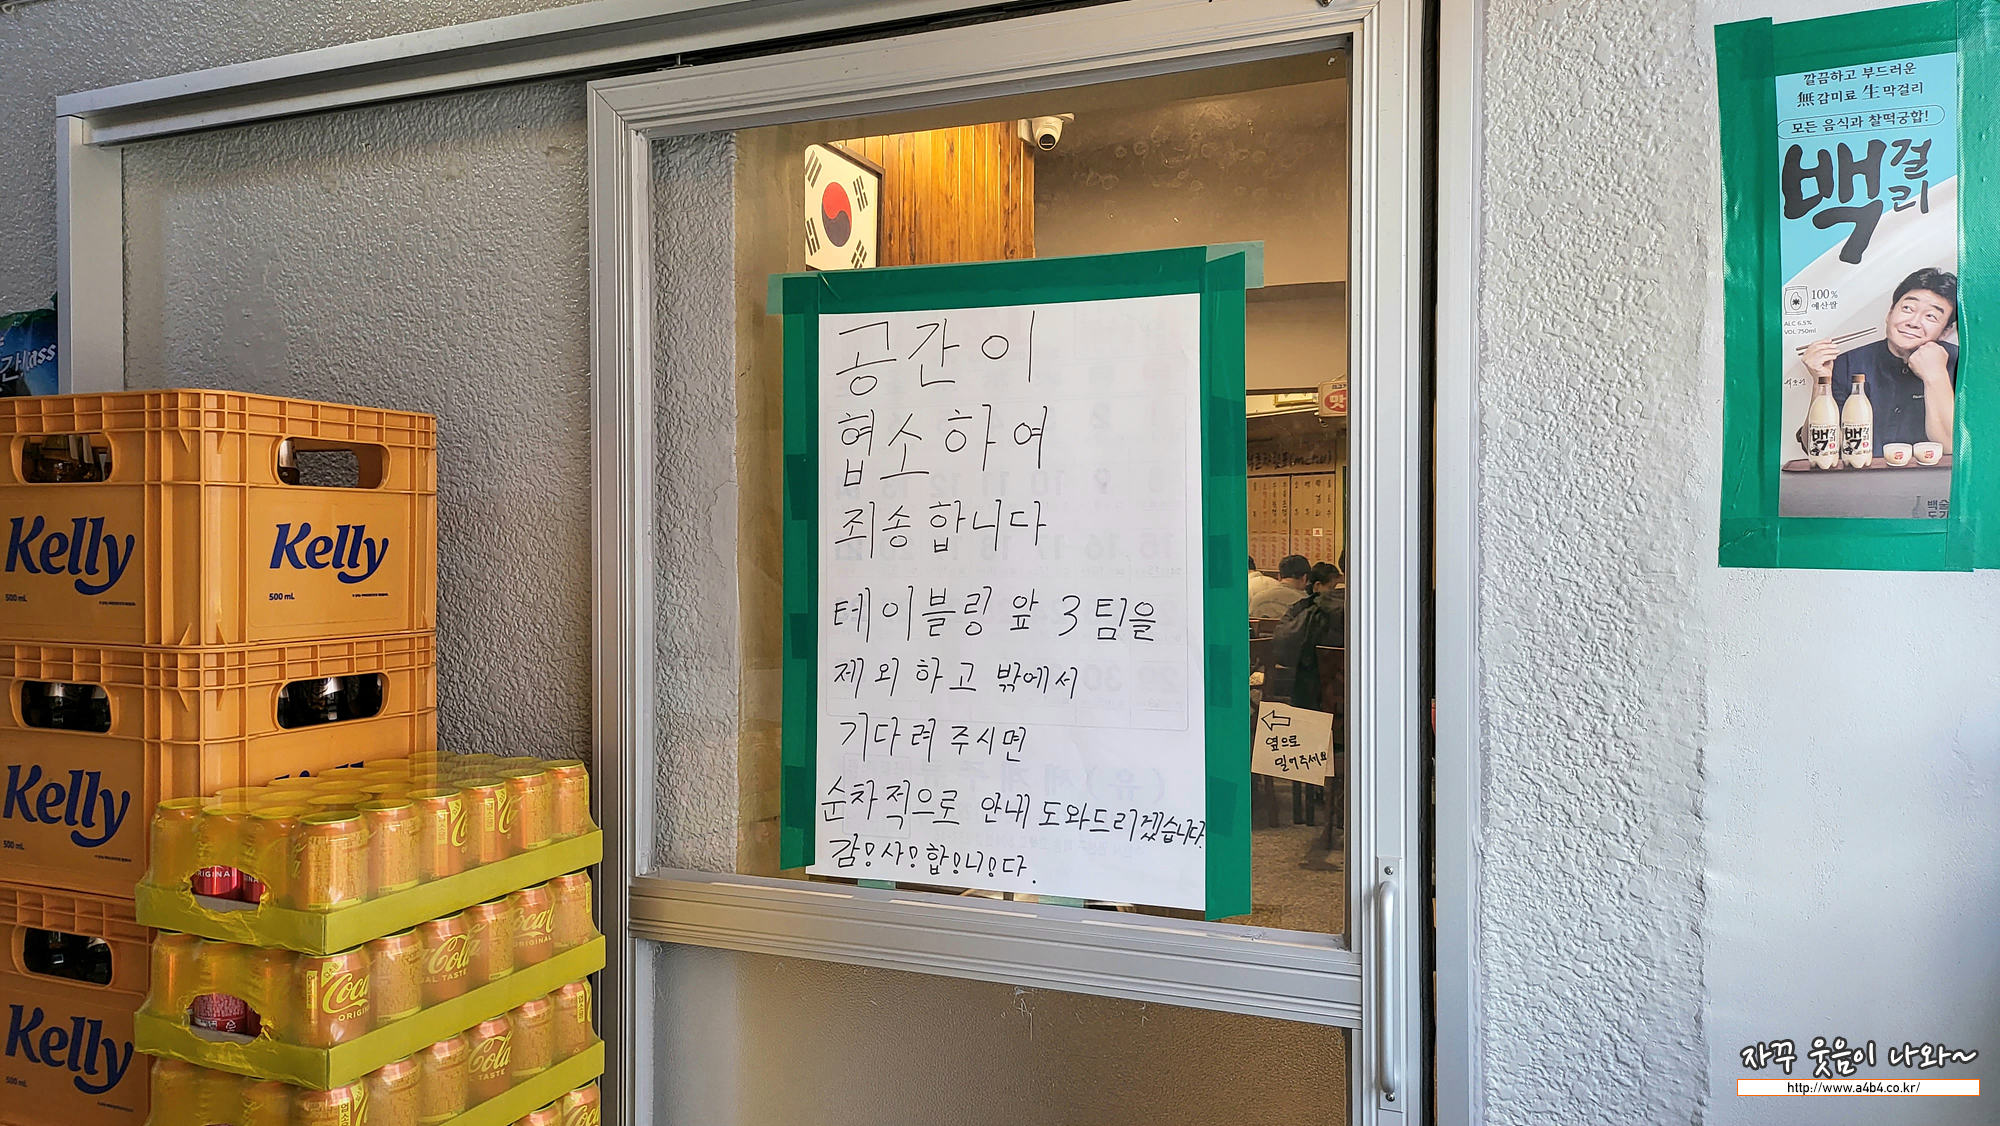 공간이
협소하여
죄송합니다
테이블링 앞 3팀을
제외하고 밖에서
기다려 주시면
순차적으로 안내 도와드리겠습니다.
감사합니다.
옆으로
밀어주세요
깔끔하고 부드러운
無감미료 生막걸리
모든 음식과 찰떡궁합!
백걸리
100%
예산쌀
ALC 6.5%
VOL 750ml
백걸리
백걸리
백술
도가
맛
ass
Kelly
500 mL
Kelly
500 mL
Kelly
500 mL
Kelly
500 mL
ORIGINA
Coca
ORIGIN
Cola
TASTE
Coca
ORIGINAL
Cola
TASTE
자꾸 웃음이 나와~
http://www.a4b4.co.kr/